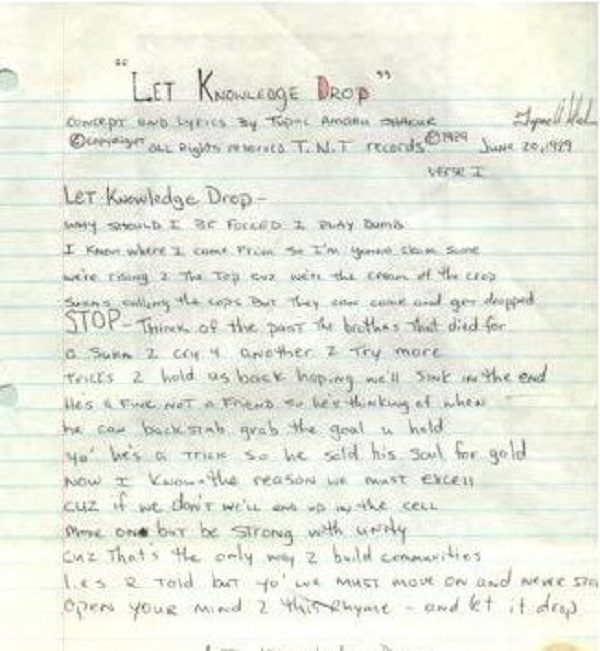 "LET KNOWLEDGE DROP"
CONCEPT AND LYRICS BY TUPAC AMARU SHAKUR
© copyright ALL Rights reserved T.N.T records © 1989 June 20, 1989
VERSE I
LET KNOWLEDGE DROP -
WHY SHOULD I BE FORCED 2 PLAY DUMB
I KNOW where I came From so I'm gonna claim some
we're rising 2 The Top cuz we're the cream of the crop
calling the cops But They can come and get dropped
STOP - THINK of the past The brothas That died for
a 2 cry 4 another 2 Try more
TRICKS 2 hold us back hoping we'll sink in the end
He's a NOT a Friend so he's thinking of when
he can backstab grab the goal u hold
yo' he's a Trick so he sold his soul for gold
NOW I Know the reason we must excell
CUZ if we don't we'll end up in the cell
move on but be STRONG with unity
CUZ That's the only way 2 build communities
Lies R Told but yo' we MUST MOVE ON AND NEVER
OPEN YOUR MIND 2 this Rhyme - and let it drop